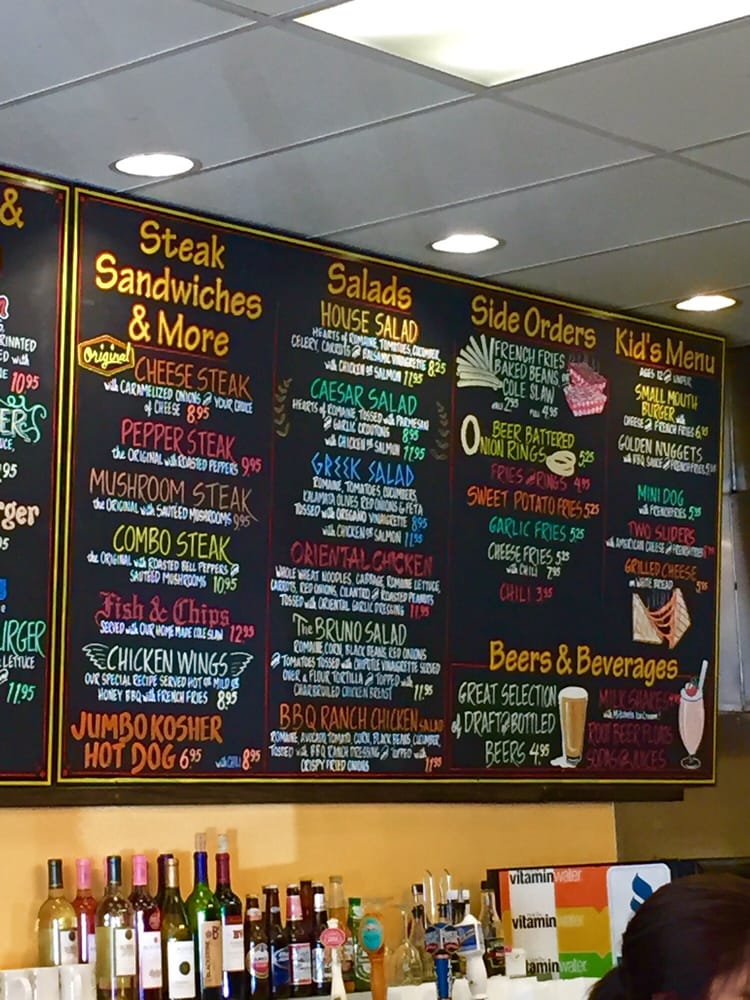 &
10.95
.95
rger
URGER
LETTUCE
11.95
Steak
Sandwiches
& More
Original
CHEESE STEAK
with CARAMELIZED ONIONS & YOUR CHOICE
of CHEESE 8.95
PEPPER STEAK
the ORIGINAL with ROASTED PEPPERS 9.95
MUSHROOM STEAK
the ORIGINAL with SAUTEED MUSHROOMS 9.95
COMBO STEAK
the ORIGINAL with ROASTED BELL PEPPERS &
SAUTEED MUSHROOMS 10.95
Fish & Chips
SERVED with OUR HOME MADE COLE SLAW 12.95
CHICKEN WINGS
OUR SPECIAL RECIPE SERVED HOT or MILD or
HONEY BBQ with FRENCH FRIES 8.95
JUMBO KOSHER
HOT DOG 6.95 with CHILI 8.95
Salads
HOUSE SALAD
HEARTS of ROMAINE, TOMATOES, CUCUMBER,
CELERY, CARROTS & BALSAMIC VINAIGRETTE 8.25
with CHICKEN or SALMON 11.95
CAESAR SALAD
HEARTS of ROMAINE TOSSED with PARMESAN
& GARLIC CROUTONS 8.95
with CHICKEN or SALMON 11.95
GREEK SALAD
ROMAINE, TOMATOES, CUCUMBERS,
KALAMATA OLIVES, RED ONIONS & FETA
TOSSED with OREGANO VINAIGRETTE 8.95
with CHICKEN or SALMON 11.95
ORIENTAL CHICKEN
WHOLE WHEAT NOODLES, CABBAGE, ROMAINE LETTUCE,
CARROTS, RED ONIONS, CILANTRO & ROASTED PEANUTS
TOSSED with ORIENTAL GARLIC DRESSING 11.95
The BRUNO SALAD
ROMAINE, CORN, BLACK BEANS, RED ONIONS
& TOMATOES TOSSED with CHIPOTLE VINAIGRETTE SERVED
OVER a FLOUR TORTILLA & TOPPED with
CHARBROILED CHICKEN BREAST 11.95
BBQ RANCH CHICKEN SALAD
ROMAINE, AVOCADO, TOMATO, CORN, BLACK BEANS, CUCUMBER,
TOSSED with BBQ RANCH DRESSING & TOPPED with
CRISPY FRIED ONIONS 11.95
Side Orders
FRENCH FRIES
BAKED BEANS or
COLE SLAW
2.95 4.95
BEER BATTERED
ONION RINGS 5.25
FRIES & RINGS 4.95
SWEET POTATO FRIES 5.25
GARLIC FRIES 5.25
CHEESE FRIES 5.25
with CHILI 7.95
CHILI 3.95
Kid's Menu
AGES 12 & UNDER
SMALL MOUTH
BURGER with
CHEESE & FRENCH FRIES 6.95
GOLDEN NUGGETS
with BBQ SAUCE & FRENCH FRIES
MINI DOG
with FRENCH FRIES 5.95
TWO SLIDERS
with AMERICAN CHEESE & FRENCH FRIES
GRILLED CHEESE
on WHITE BREAD
Beers & Beverages
GREAT SELECTION
of DRAFT & BOTTLED
BEERS 4.95
MILKSHAKES
ROOT BEER FLOATS
SODAS & JUICES
vitaminwater
vitaminwater
vitaminwater